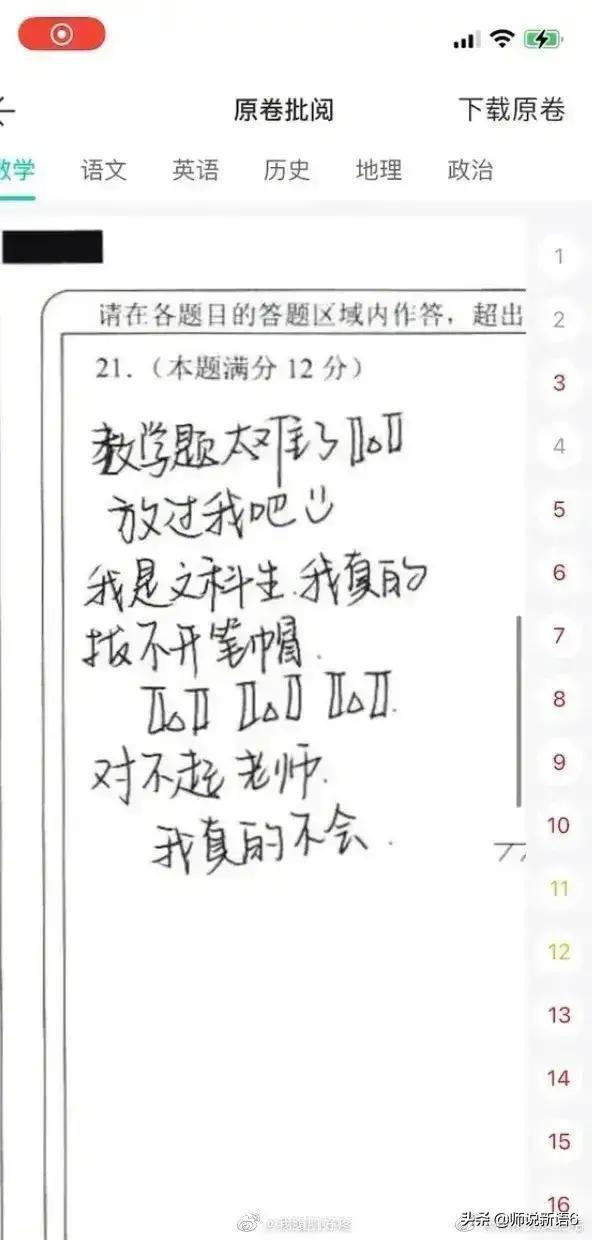 原卷批阅 下载原卷
数学 语文 英语 历史 地理 政治
请在各题目的答题区域内作答，超出
21.（本题满分 12 分）
数学题太难了
放过我吧
我是文科生.我真的
拔不开笔帽.
对不起老师.
我真的不会.
1
2
3
4
5
6
7
8
9
10
11
12
13
14
15
16
头条 @师说新语6